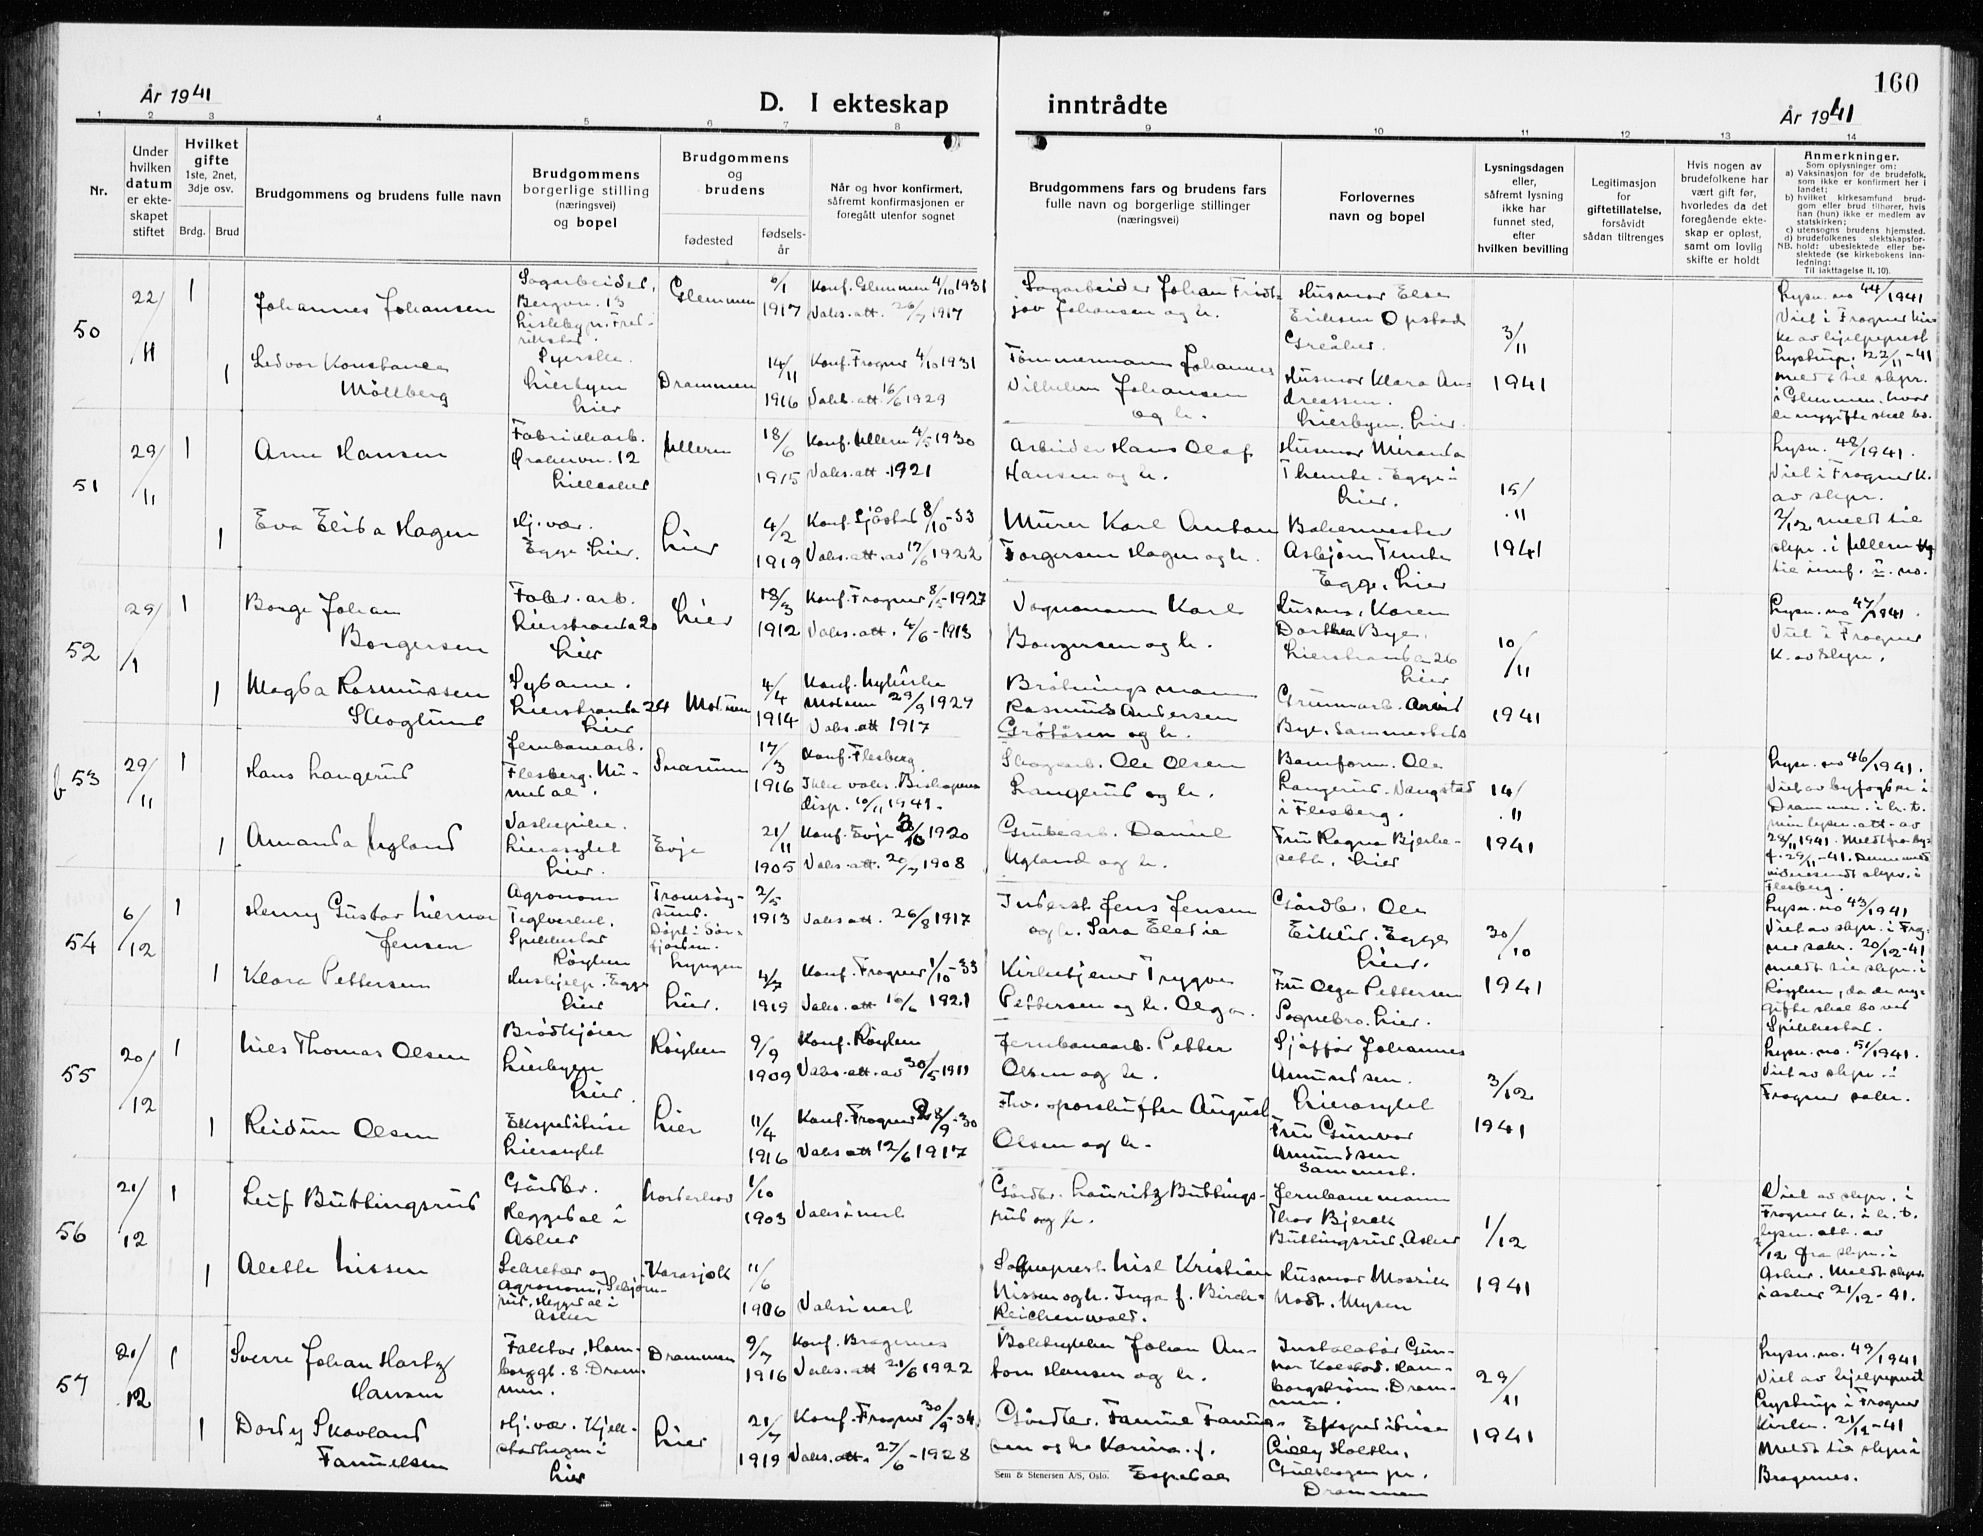 160
År 1941
D. I ekteskap inntrådte
År 1941
1 2 3 4 5 6 7 8 9 10 11 12 13 14
Nr.
Under hvilken datum er ekteskapet stiftet
Hvilket gifte
1ste, 2net, 3dje osv.
Brdg. Brud
Brudgommens og brudens fulle navn
Brudgommens borgerlige stilling (næringsvei) og bopel
Brudgommens og brudens
fødested
fødselsår
Når og hvor konfirmert, såfremt konfirmasjonen er foregått utenfor sognet
Brudgommens fars og brudens fars fulle navn og borgerlige stillinger (næringsvei)
Forlovernes navn og bopel
Lysningsdagen eller, såfremt lysning ikke har funnet sted, efter hvilken bevilling
Legitimasjon for giftetillatelse, forsåvidt sådan tiltrenges
Hvis nogen av brudefolkene har vært gift før, hvorledes da det foregående ekteskap er opløst, samt om lovlig skifte er holdt
Anmerkninger.
Som oplysninger om:
a) Vaksinasjon for de brudefolk, som ikke er konfirmert her i landet;
b) hvilket kirkesamfund brudgom eller brud tilhører, hvis han (hun) ikke er medlem av statskirken;
c) utensogns brudens hjemsted.
d) brudefolkenes slektskapsforhold: ubeslektede eller beslektede (se kirkebokens innledning:
NB.
Til iakttagelse II, 10).
50
22/11
1
Johannes Johansen
Sagarbeider,
Bergvn. 13
Lislebyn. Fredrikstad.
Glemmen
6/1 1917
Konf. Glemmen 4/10 1931
Vaks. att. 26/7 1917
Sagarbeider Johan Fridtjov Johansen og h.
Husmor Else
Eriksen Opstad
Greåker.
3/11 1941
Lysn. no 44/1941
Viet i Frogner kirke av hjelpeprest
Lystrup. 22/11-41
meldt til slepr.
i Glemmen, hvor
de nygifte skal bo.
1
Ledvor Konstance
Möllberg
Syerske.
Lierbyen
Lier
Drammen
14/11 1916
Konf. Frogner 4/10 1931
Vaks. att. 16/6 1929
Tømmermann Johannes
Vilhelm Johansen
og h.
Husmor Klara Andreassen.
Lierbyen, Lier.
51
29/11
1
Arne Hansen
Fabrikkarb.
12
Lilleaker
Ullern
18/6 1915
Konf. Ullern 4/5 1930
Vaks. att. 1921
Arbeider Hans Olaf
Hansen og h.
Husmor Miranda
Themte. Egge i
Lier.
15/11 1941
Lysn. 48/1941.
Viet i Frogner K.
av slepr.
2/12 meldt til
slepr. i Ullern
1
Eva Elida Hagen
Hj. vær.
Egge. Lier.
Lier
4/2 1919
Konf. Sjåstad 8/10-33
Vaks. att. av 17/6 1922
Murer Karl Anton
Torgersen Hagen og h.
Bakermester
Asbjørn Temte
Egge, Lier
52
29/1
1
Borge Johan
Borgersen
Fabr. arb.
Lierstranda 20
Lier
Lier
18/3 1912
Konf. Frogner 8/5 1927
Vaks. att. 4/6-1913
Vognmann Karl
Borgersen og h.
Husmo. Karen
Dorthea Bye.
Lierstranda 26
Lier
10/11 1941
Lysn. no 47/1941.
Viet i Frogner
K. av slepr.
1
Magda Rasmussen
Skoglund
Sydame.
Lierstranda 24
Lier
Modum
4/4 1914
Konf. Nykirke
Modum 29/9 1929
Vaks. att 1917
Brötningsmann
Rasmus Andersen
Gröfåsen og h.
Grunnarb. Arvid
Bye. Sammesteds
53
29/11
1
Hans Langerud
Jernbanearb.
Flesberg. Numedal.
Snarum
17/3 1916
Konf. Flesberg
Ikke vaks. Biskopens
disp. 10/11 1941.
Skogsarb. Ole Olsen
Langerud og h.
Bamform. Ole
Langerud. Vangstad
i Flesberg.
14/11 1941
Lysn. no 46/1941.
Viet av byfogden i
Drammen i h. t.
min lysn. att. av
28/11 1941. Meldt fra by
f. 29/11-41. Denne med
videresendt slepr. i
Flesberg.
1
Amanda Ugland
Vaskepike.
Lierasylet
Lier.
Evje
21/11 1905
Konf. Evje 3/10 1920
Vaks. att. 20/7 1908
Grubearb. Daniel
Ugland og h.
Fru Ragna Bjerkeseth. Lier
54
6/12
1
Henry Gustav Liemor
Jensen
Agronom
Teglverket.
Spikkestad
Røyken
Tromsöysund.
Döpt i Sörfjorden.
Lyngen
2/5 1913
Vaks att. 26/8 1917
Inderst Jens Jensen
og h. Sara Eledie
Gårdbr. Ole
Eikild. Egge
Lier.
30/10 1941
Lysn. no 43/1941
Viet av slepr. i Frogner saker. 20/12-41
meldt til slepr. i
Røyken, da de nygifte skal bo ved
Spikkestad.
1
Klara Pettersen
Hushjelp. Egge
Lier
Lier.
4/7 1919
Konf. Frogner 1/10-33
Vaks. att 16/6 1921
Kirketjener Trygve
Pettersen og h. Olga.
Fru Olga Pettersen
Sognebro. Lier.
55
20/12
1
Nils Thomas Olsen
Brödkjörer
Lierbyen
Lier.
Röyken
9/9 1909
Konf. Röyken
Vaks. att. av 30/5 1911
Jernbanearb. Petter
Olsen og h.
Sjåffør Johannes
Amundsen.
Lierasylet
3/12 1941
Lysn. no. 51/1941.
Viet av slepr. i
Frogner saker.
1
Reidun Olsen
Ekspeditrise
Lierasylet
Lier
11/4 1916
Konf. Frogner 28/9-30
Vaks att 12/6 1917
Fhv. sporskifter August
Olsen og h.
Fru Gunvor
Amundsen
Sammest.
56
21/12
1
Leif Buttingsrud
Gårdbr.
Heggedal i
Asker
Norderhov
1/10 1903
Vaksinert
Gårdbr. Lauritz Buttingsrud og h.
Jernbanemann
Thor Bjerell
Buttingsrud, Asker
1/12 1941
Viet av slepr. i
Frogner K. i h. t.
lysn. att. av
2/12 fra slepr. i
Asker. Meldt slepr.
i Asker 21/12-41.
1
Aletthe Nissen
Sekretær og
Agronom,
Heggedal i
Asker
Karasjokk
11/6 1906
Vaksinert
Sogneprest Nisl Kristian
Nissen og h. Inga f. Birch-
Reichenwald.
Husmor Marith
Nodt. Mysen
57
21/12
1
Sverre Johan Hartz
Hansen
Faktor, Hamborggt. 8. Drammen.
Drammen
9/7 1916
Konf. Bragernes
Vaks. att 21/6 1922
Boktrykker Johan Anton Hansen og h.
Installatör Gunnar Kolstad. Hamborgström. Drammen.
29/11 1941
Lysn. no. 49/1941
Viet av hjelpeprest
Lystrup i Frogner
Kirke. 21/12-41
Meldt til slepr i
Bragernes.
1
Dordy Skovland
Fanuelsen
Hj. vær. Kjellstadhagen i
Lier
Lier
21/7 1919
Konf. Frogner 30/9-34
Vaks. att. 27/6-1928
Gårdbr. Fanuel Fanuelsen og h. Karina f.
Espedal
Ekspeditrise
Lilly Holthe,
Gulskogen pr.
Drammen
Sem & Stenersen A/S, Oslo.